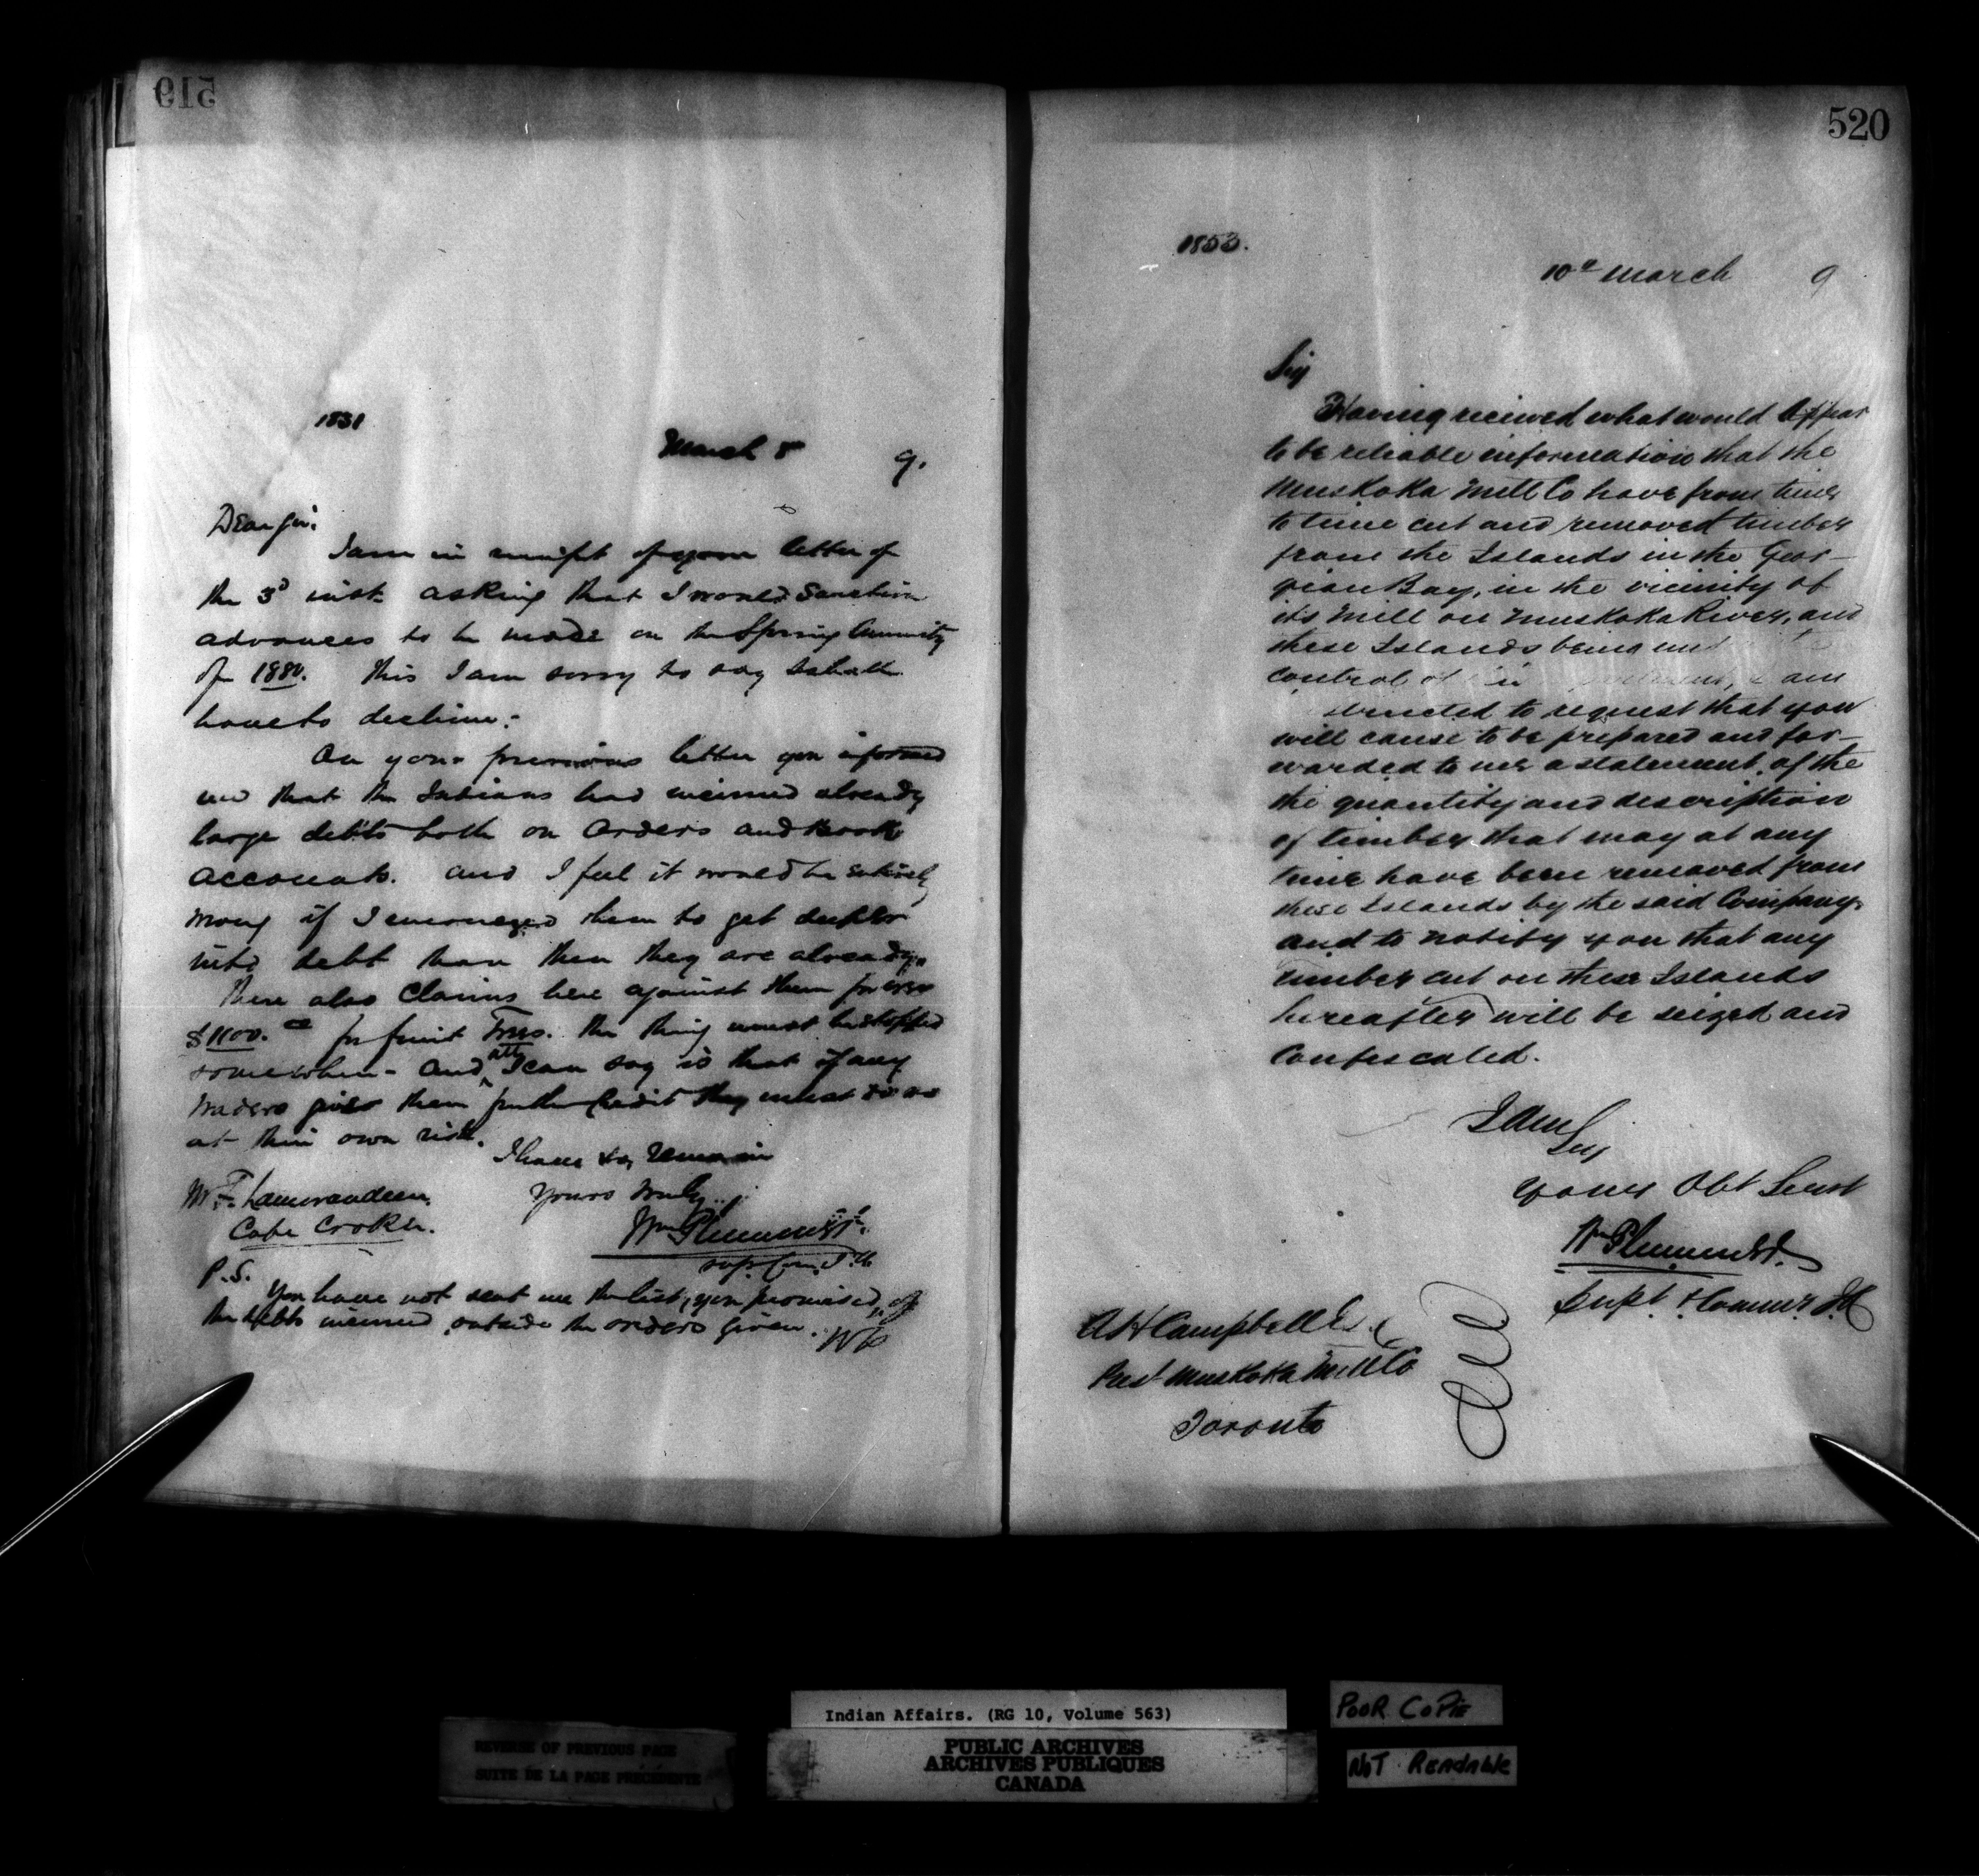 519
1831
March 5 9.
Dear Sir.
I am in receipt of your letter of
the 3d inst. asking that I would Sanction
advances to be made on the Spring Annuity
of 1880. This I am sorry to say I shall
have to decline.-
On your previous letter you informed
me that the Indians had incurred already
large debts both on Orders and Book
accounts. and I feel it would be entirely
wrong if I encouraged them to get deeper
into debt than then they are already.
There also Claims here against them for over
$1100. for fruit Trees. the thing must be stopped
somewhere - and all I can say is that if any
traders gives them further Credit they must do so
at their own risk.
I have to remain
Yours truly
Wm Plummer
Sup. Com.
Mr. F. Lamorandiere.
Cape Croker.
P.S. You have not sent me the list, you promised, of
the debts incurred outside the orders given. WP
520
1853.
10th March 9
Sir
Having recieved what would appear
to be reliable information that the
Muskoka Mill Co have from time
to time cut and removed timber
from the Islands in the Geor-
gian Bay, in the vicinity of
its Mill on Muskoka River, and
these Islands being
control am
to request that you
will cause to be prepared and for-
warded to me a statement of the
the quantity and description
of timber that may at any
time have been removed from
these Islands by the said Company,
and to notify you that any
timber cut on these Islands
hereafter will be seized and
Confiscated.
I am
Sir
Your Obt Servt
Wm Plummer
Supt. & Commr. I A
A H Campbell Esq
Prest Muskoka Mill Co
Toronto
Indian Affairs. (RG 10, Volume 563)
PUBLIC ARCHIVES
ARCHIVES PUBLIQUES
CANADA
REVERSE OF PREVIOUS PAGE
SUITE DE LA PAGE PRÉCÉDENTE
POOR COPIE
NOT READABLE